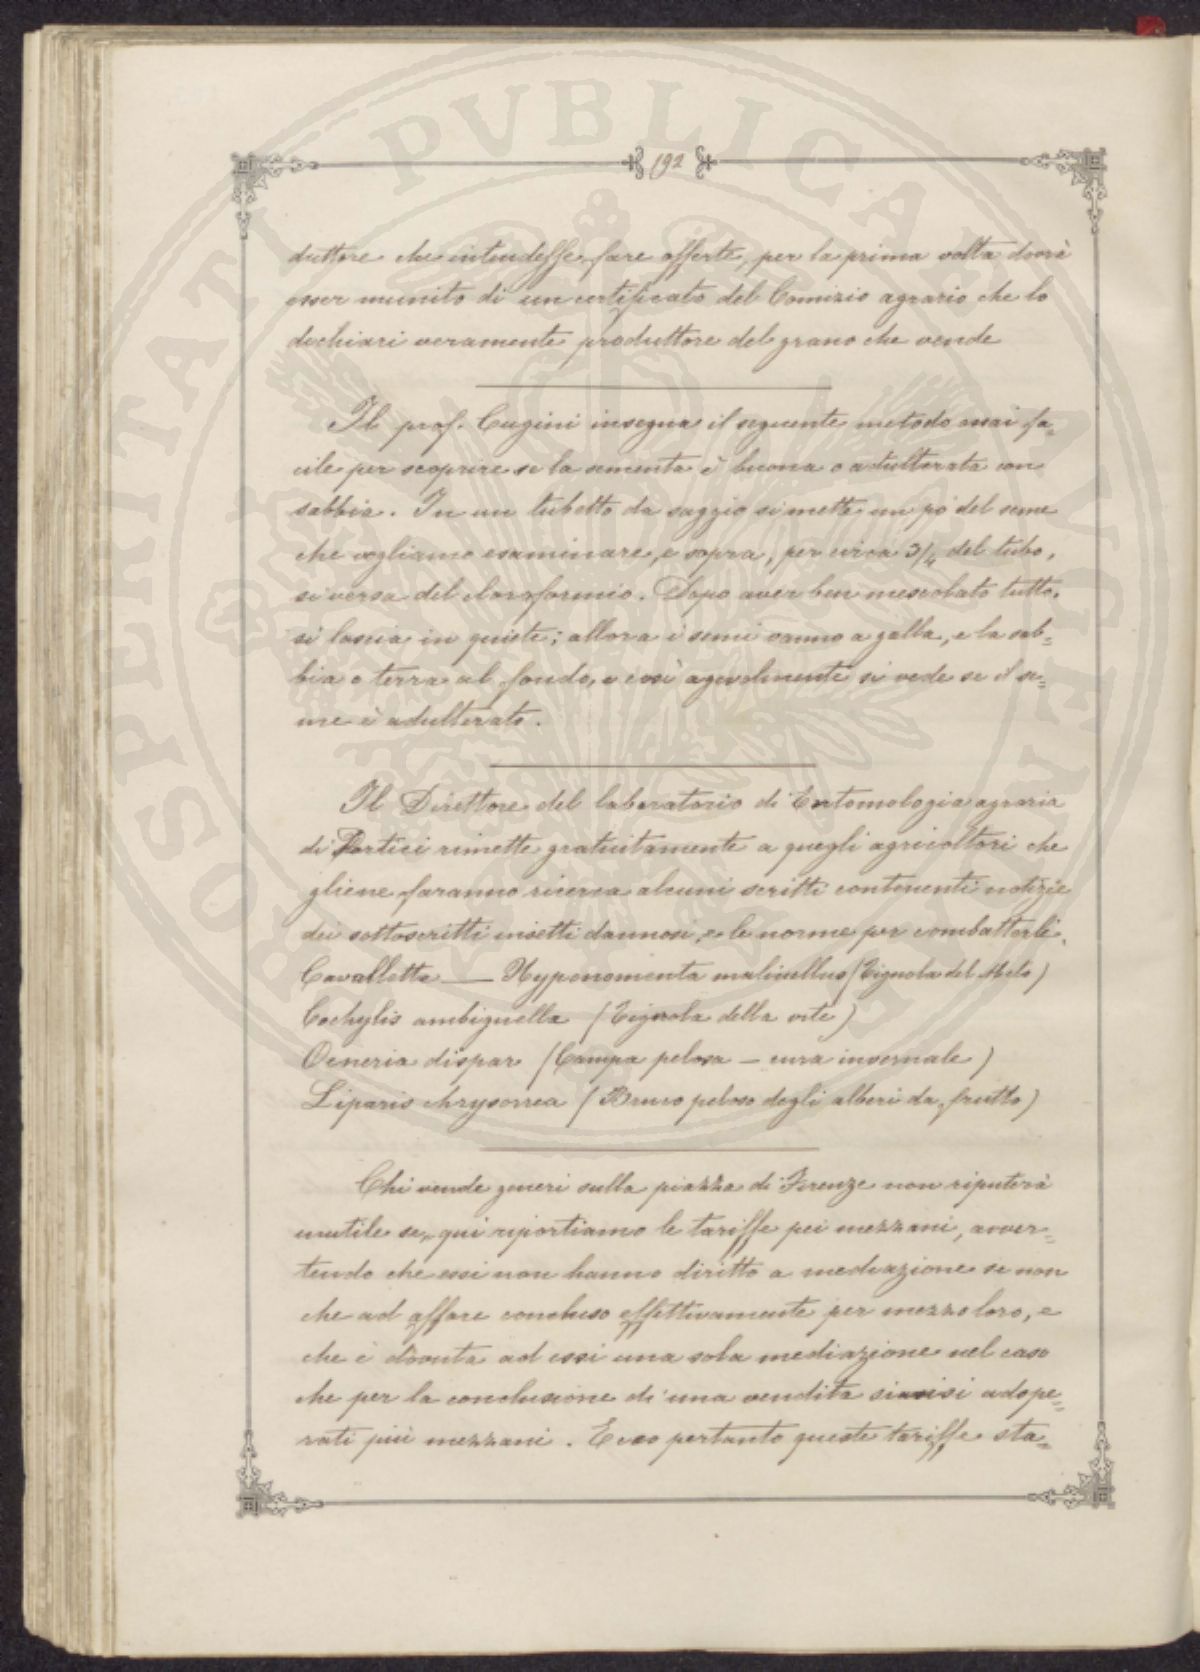 192
duttore che intendesse fare offerte, per la prima volta dovrà
esser munito di un certificato del Comizio agrario che lo
dichiari veramente produttore del grano che vende
Il prof. Cugini insegna il seguente metodo assai fa=
cile per scoprire se la sementa è buona o adulterata con
sabbia. In un tubetto da saggio si mette un pò del seme
che vogliamo esaminare, e sopra, per circa 3/4 del tubo,
si versa del cloroformio. Dopo aver ben mescolato tutto,
si lascia in quiete; allora i semi vanno a galla, e la sab=
bia o terra al fondo, e così agevolmente si vede se il se=
me è adulterato.
Il Direttore del laboratorio di Entomologia agraria
di Portici rimette gratuitamente a quegli agricoltori che
gliene faranno ricerca alcuni scritti contenenti notizie
dei sottoscritti insetti dannosi, e le norme per combatterli.
Cavallette — Hyponomenta malinellus (Tignola del Melo)
Cochylis ambiguella (Tignola della vite)
Ocneria dispar (Campa pelosa - cura invernale)
Liparis chrysorrea (Bruco peloso degli alberi da frutto)
Chi vende generi sulla piazza di Firenze non riputerà
inutile se qui riportiamo le tariffe pei mezzani, avver=
tendo che essi non hanno diritto a mediazione se non
che ad affare concluso effettivamente per mezzo loro, e
che è dovuta ad essi una sola mediazione nel caso
che per la conclusione di una vendita siansi adope=
rati più mezzani. Ecco pertanto queste tariffe sta=
PROSPERITATI PVBLICAE AVGENDAE